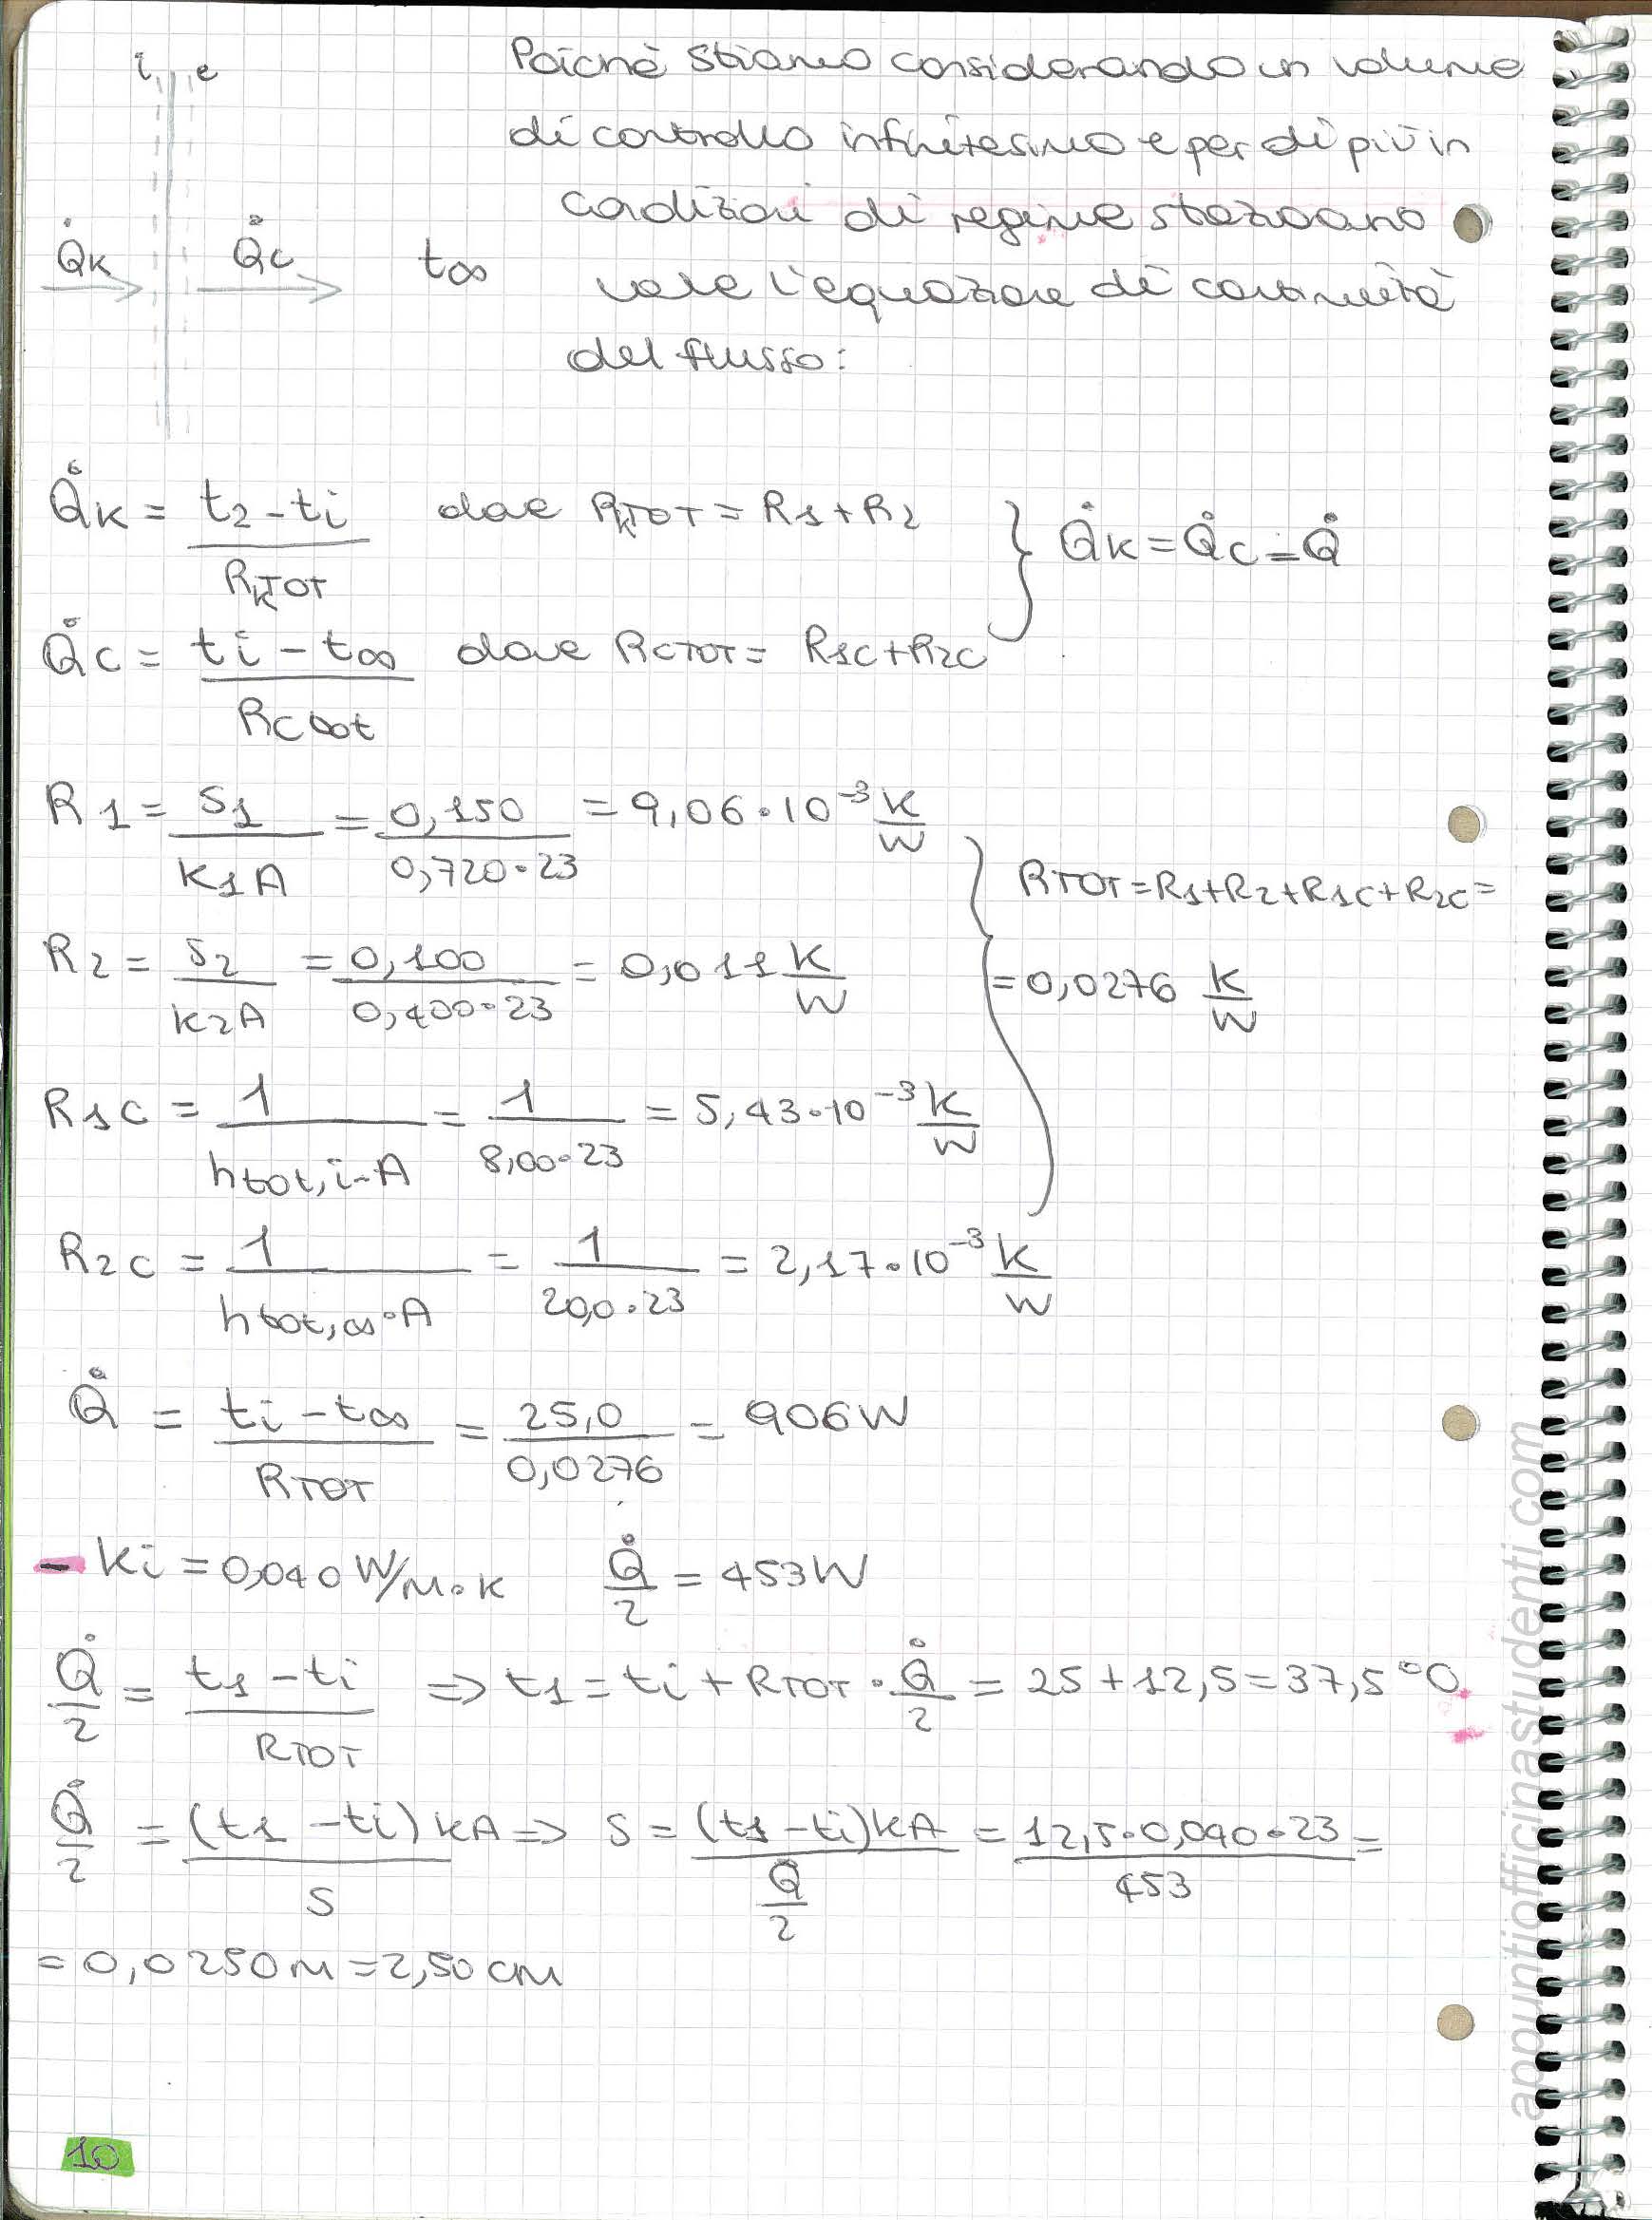 i e
Poichè stiamo considerando un volume
di controllo infinitesimo e per di più in
condizioni di regime stazionario
Q̇k Q̇c t∞ vale l'equazione di continuità
del flusso:
Q̇k = (t2 - ti) / RkTOT dove RkTOT = R1 + R2 } Q̇k = Q̇c = Q̇
Q̇c = (ti - t∞) / Rctot dove RcTOT = R1c + R2c
R1 = s1 / (k1A) = 0,150 / (0,720·23) = 9,06·10⁻³ K/W
RTOT = R1 + R2 + R1c + R2c =
R2 = s2 / (k2A) = 0,100 / (0,400·23) = 0,011 K/W
= 0,0276 K/W
R1c = 1 / (htot,i·A) = 1 / (8,00·23) = 5,43·10⁻³ K/W
R2c = 1 / (htot,∞·A) = 1 / (20,0·23) = 2,17·10⁻³ K/W
Q̇ = (ti - t∞) / RTOT = 25,0 / 0,0276 = 906 W
- ki = 0,040 W/m·K Q̇/2 = 453 W
Q̇/2 = (t1 - ti) / RTOT => t1 = ti + RTOT · Q̇/2 = 25 + 12,5 = 37,5 °C
Q̇/2 = (t1 - ti)kA / s => s = (t1 - ti)kA / (Q̇/2) = 12,5·0,040·23 / 453 =
= 0,0250 m = 2,50 cm
10
appuntiofficinastudenti.com